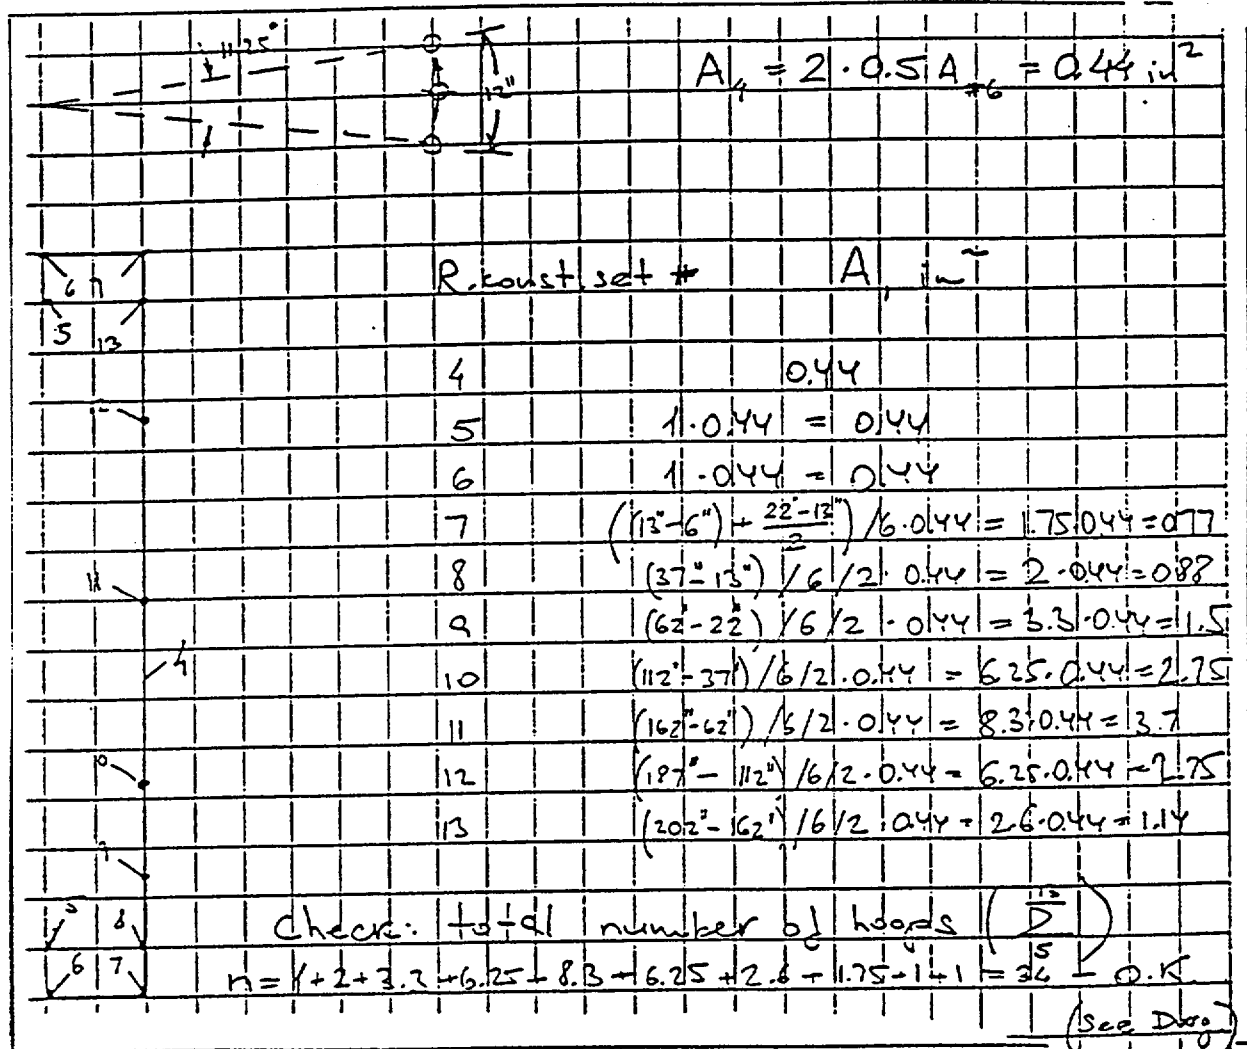 11.25°
12"
A₄ = 2 · 0.5 A#6 = 0.44 in²
R. const. set # A, in²
6 7
5 13
4 0.44
12
5 1 · 0.44 = 0.44
6 1 · 0.44 = 0.44
7 ((13"-6") + (22"-13")/2) / 6 · 0.44 = 1.75 · 0.44 = 0.77
8 (37"-13") / 6 / 2 · 0.44 = 2 · 0.44 = 0.88
11
9 (62"-22") / 6 / 2 · 0.44 = 3.3 · 0.44 = 1.5
4
10 (112"-37") / 6 / 2 · 0.44 = 6.25 · 0.44 = 2.75
11 (162"-62") / 6 / 2 · 0.44 = 8.3 · 0.44 = 3.7
12 (187"-112") / 6 / 2 · 0.44 = 6.25 · 0.44 = 2.75
13 (202"-162") / 6 / 2 · 0.44 = 2.6 · 0.44 = 1.14
9
5 8
Check: total number of hoops (Σ 5 13)
6 7
n = 1 + 2 + 3.2 + 6.25 + 8.3 + 6.25 + 2.6 + 1.75 + 1 + 1 = 34 - O.K.
(See Dwg)